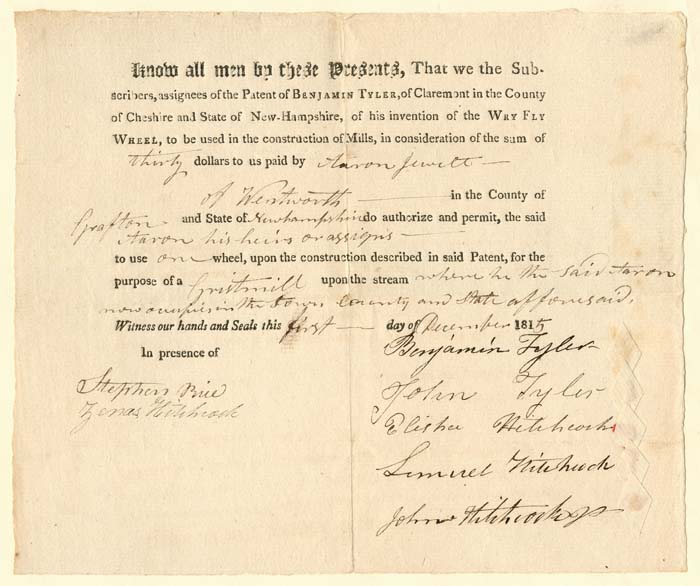 Know all men by these Presents, That we the Sub-
scribers, assignees of the Patent of BENJAMIN TYLER, of Claremont in the County
of Cheshire and State of New-Hampshire, of his invention of the WRY FLY
WHEEL, to be used in the construction of Mills, in consideration of the sum of
thirty dollars to us paid by Aaron Jewett
of Wentworth in the County of
Grafton and State of Newhampshire do authorize and permit, the said
Aaron his heirs or assigns
to use one wheel, upon the construction described in said Patent, for the
purpose of a Gristmill upon the stream where he the said Aaron
now occupies in the Town County and State afforesaid.
Witness our hands and Seals this first day of December 1815
In presence of
Benjamin Tyler
Stephen Rice
John Tyler
Zenas Hitchcock
Elisha Hitchcock
Lemuel Hitchcock
John Hitchcock Jr